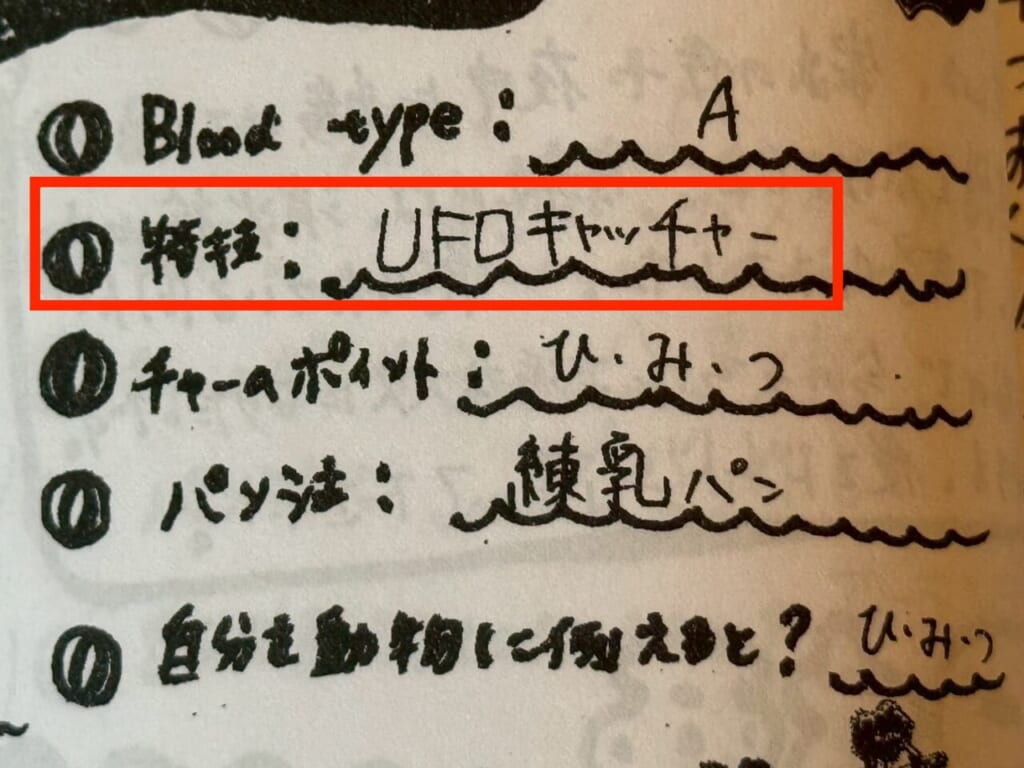 Blood type: A
特技: UFOキャッチャー
チャームポイント: ひ・み・つ
パン派: 練乳パン
自分を動物に例えると? ひ・み・つ